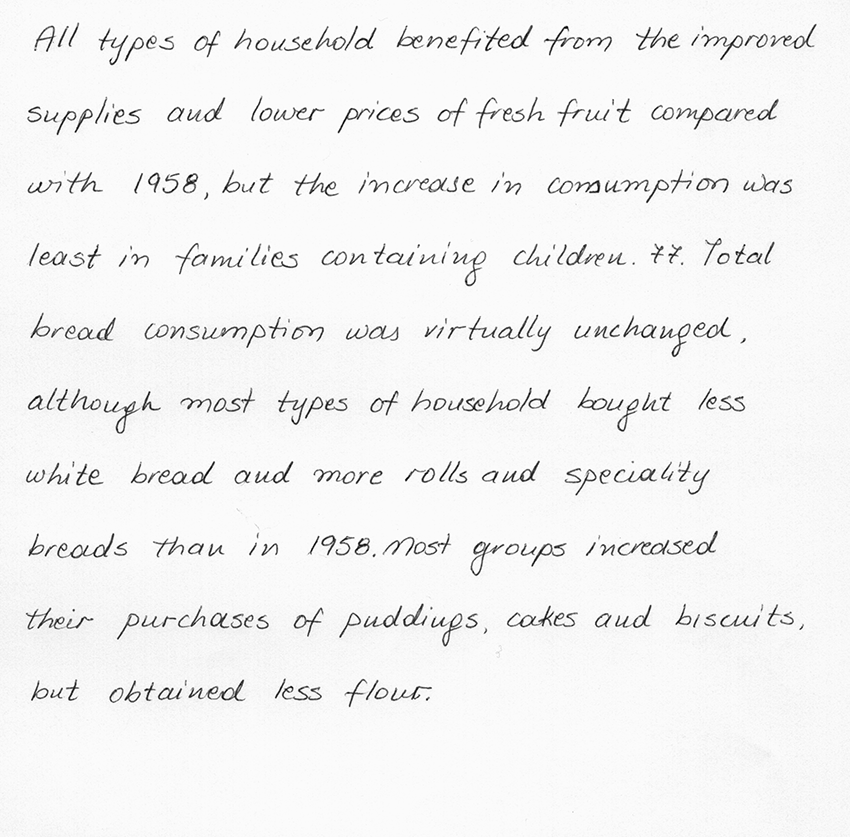 All types of household benefited from the improved
supplies and lower prices of fresh fruit compared
with 1958, but the increase in consumption was
least in families containing children. 77. Total
bread consumption was virtually unchanged,
although most types of household bought less
white bread and more rolls and speciality
breads than in 1958. Most groups increased
their purchases of puddings, cakes and biscuits,
but obtained less flour.